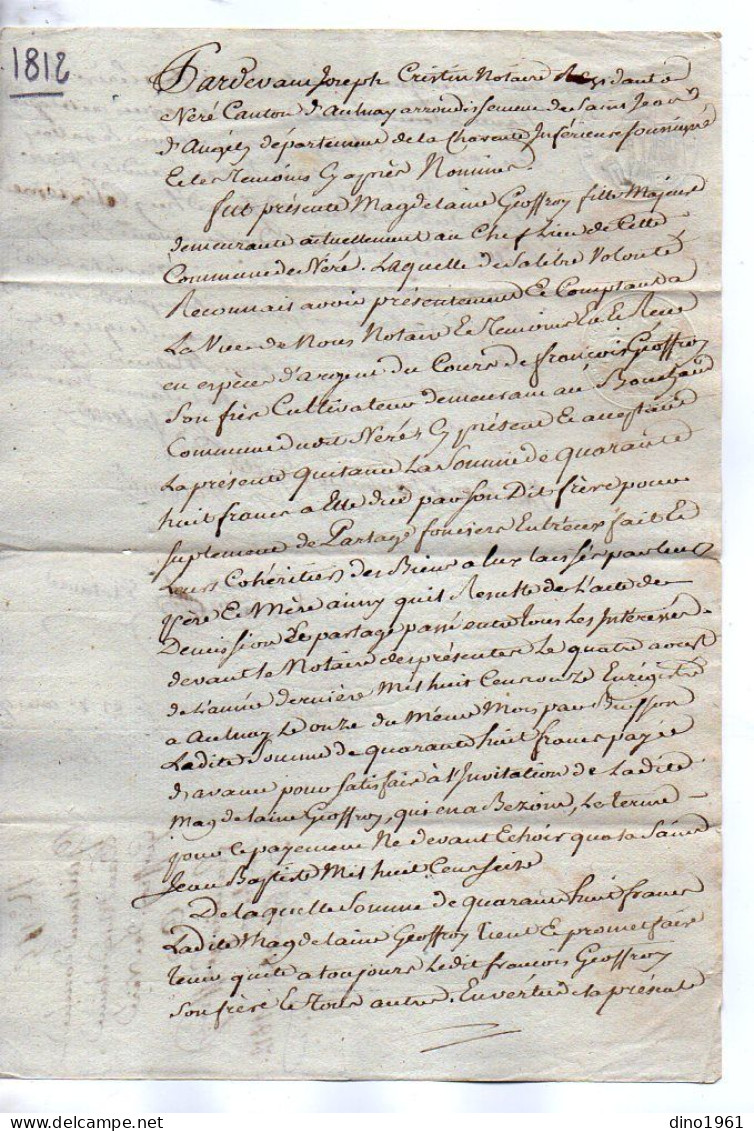 1812
Pardevant Joseph Cristin Notaire Residant à
Néré Canton d'Aulnay arrondissement de Saint Jean
d'Angely département de la Charente Inférieure soussigné
Et les Temoins Cy après Nommés.
fut présente Magdelaine Geoffroy fille Majeure
demeurante actuellement au Chef Lieu de Cette
Commune de Néré. Laquelle de Sa libre Volonté
Reconnait avoir présentement Et Comptant a
La Vue de Nous Notaire Et Temoins Eu Et Recu
en espèce d'argent du Cours de françois Geoffroy
Son frère Cultivateur demeurant au Bouchaud
Commune dudit Néré Cy présent Et acceptant
La présente quitance La Somme de quarante
huit francs a Elle due par Son Dit frère pour
suplement de Partage fonciers Entr'eux fait Et
Leurs Cohéritiers des Biens a Eux laissés par leurs
père Et Mère ainsy quil Resulte de L'acte de
Demission Et partage passé entre tous Les Intéressés
devant le Notaire des présentes Le quatre aoust
de L'année dernière Mil huit Cent onze Enrégistré
a Aulnay Le onze du Même Mois par Buisson
Ladite Somme de quarante huit francs payée
d'avance pour Satisfair à l'Invitation de Ladite
Magdelaine Geoffroy, qui en a Bezoin, Le terme
pour le payement Ne devant Echoir qua la Saint
Jean Baptiste Mil huit Cent
De laquelle Somme de quarante huit francs
Ladite Magdelaine Geoffroy tient Et promet faire
tenir quite a toujours Ledit françois Geoffroy
Son frère Et Tous autres. En vertu de la présente
dino1961